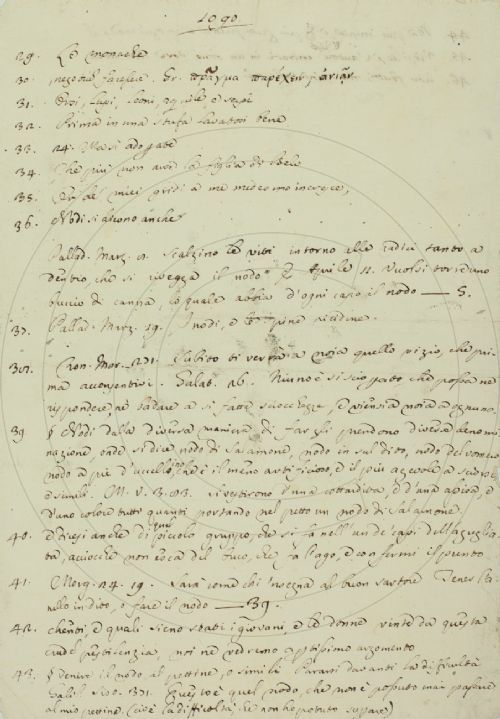 1090
29. Le monache
30. Gr. πρᾶγμα παρέχειν,
31. Orsi, Lupi, Leoni, aquile e serpi
32. Prima in una stufa lavatosi bene
33. 24.
34. Che più non avrà la figlia
35. miei gridi a me medesimo incresce,
36. Nodi si dicono anche
Pallad. Marz. Scalzino le viti intorno alle radici tanto a
dentro che si rivegga il nodo Aprile 11. Vuolsi torre uno
buccio di canna, lo quale abbia d'ogni capo il nodo — S.
37. Pallad. Marz. 19. I nodi, e le spine ricidine.
38. Cron. Mor. 271. Subito ti verrà a noia quello vizio, che pri-
ma Galat. 16. Niuno è sì scioperato che possa ne
rispondere, ne badare a sì fatte sciocchezze, e viensia noia a ognuno.
39 § Nodi dalla diversa maniera di fargli prendono diverse denomi
nazione onde si dice nodo di Salamone, nodo in sul dito, nodo del vomero
nodo a piè d'uccello, che è il meno artificioso, e il più agevole a sciorsi
e simili. M. V. 3. 83. si vestirono d'una cottardita, e d'una assisa, e
d'uno colore tutti quanti portando nel petto un nodo di Salamone.
40. e dicesi anche di quel piccolo gruppo, che si fa nell'un de' capi dell'agugliata
ta, acciocchè non esca del buco, che fa l'ago, e confermi il punto
41. Morg. 24. 19. Sarà come chi insegna al buon sartore Tener l'a-
nello in dito, o fare il nodo — 39.
42. chenti, e quali sieno stati i giovani, e le donne vinte da questa
crudel pestilenzia, noi ne vedremo apertissimo argomento
43. § Venire il nodo al pettine, o simili Pararsi davanti la difficultà
391. Questo è quel nodo, che non è potuto mai passare
al mio pettine. (cioè la difficoltà, che non ho potuto superare)